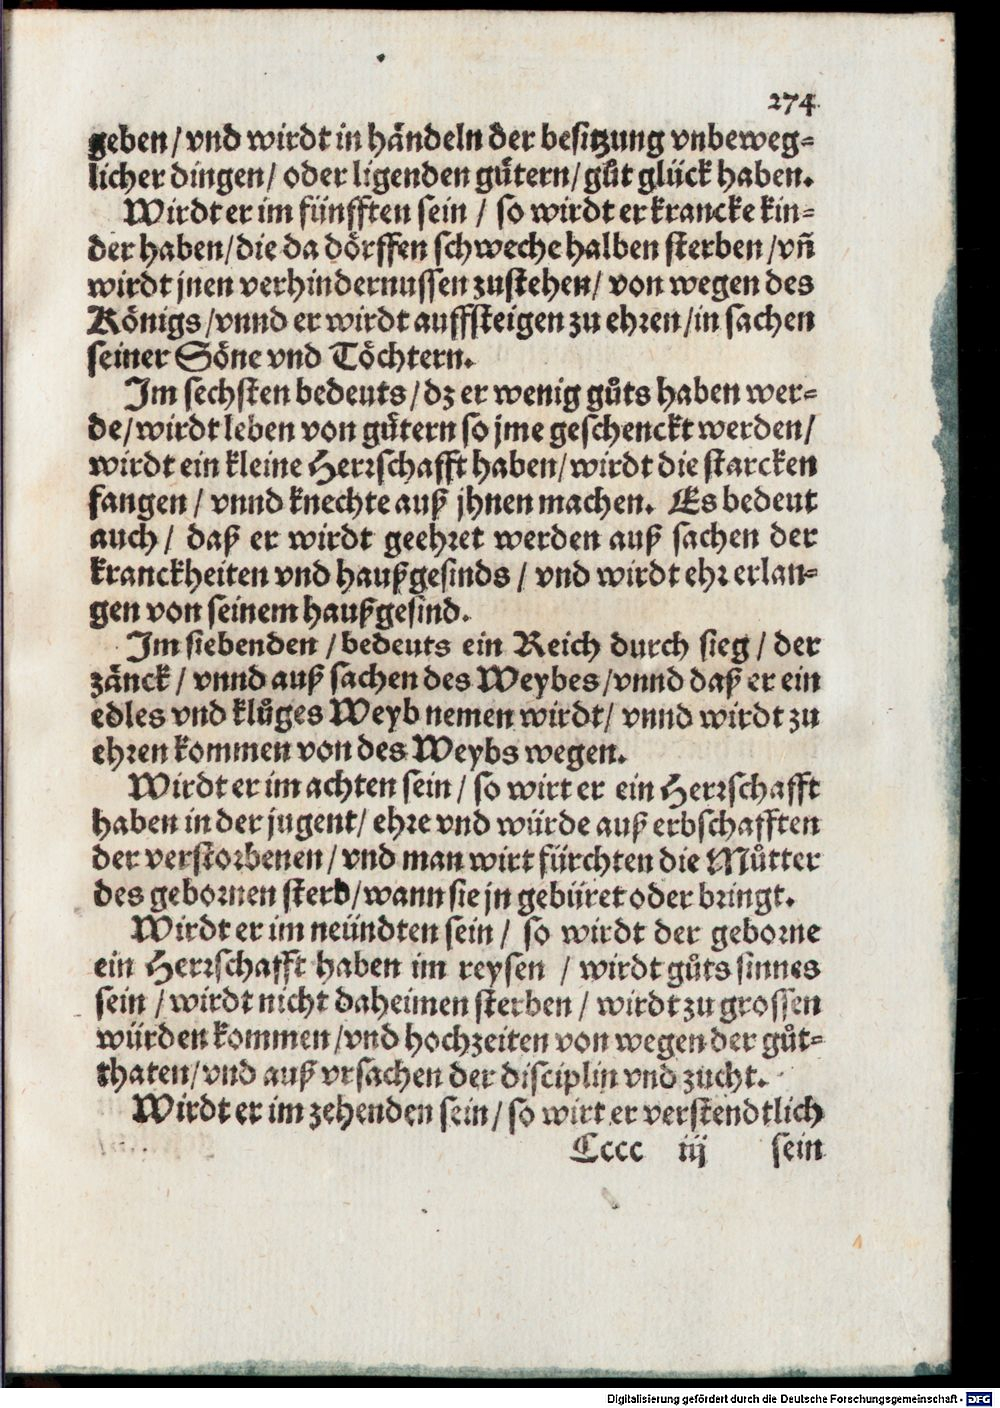 274
geben / vnd wirdt in händeln der besitzung vnbeweg=
licher dingen / oder ligenden gütern / gůt glück haben.
Wirdt er im fünfften sein / so wirdt er krancke kin=
der haben / die da dörffen schweche halben sterben / vñ
wirdt jnen verhindernussen zustehen / von wegen des
Königs / vnnd er wirdt auffsteigen zu ehren / in sachen
seiner Söne vnd Töchtern.
Im sechsten bedeuts / dz er wenig gůts haben wer=
de / wirdt leben von gütern so jme geschenckt werden /
wirdt ein kleine Herrschafft haben / wirdt die starcken
fangen / vnnd knechte auß jhnen machen. Es bedeut
auch / daß er wirdt geehret werden auß sachen der
kranckheiten vnd haußgesinds / vnd wirdt ehr erlan=
gen von seinem haußgesind.
Im siebenden / bedeuts ein Reich durch sieg / der
zänck / vnnd auß sachen des Weybes / vnnd daß er ein
edles vnd klůges Weyb nemen wirdt / vnnd wirdt zu
ehren kommen von des Weybs wegen.
Wirdt er im achten sein / so wirt er ein Herrschafft
haben in der jugent / ehre vnd würde auß erbschafften
der verstorbenen / vnd man wirt fürchten die Můtter
des gebornen sterb / wann sie jn gebüret oder bringt.
Wirdt er im neündten sein / so wirdt der geborne
ein Herrschafft haben im reysen / wirdt gůts sinnes
sein / wirdt nicht daheimen sterben / wirdt zu grossen
würden kommen / vnd hochzeiten von wegen der gůt=
thaten / vnd auß vrsachen der disciplin vnd zucht.
Wirdt er im zehenden sein / so wirt er verstendtlich
Cccc iij sein
Digitalisierung gefördert durch die Deutsche Forschungsgemeinschaft - DFG